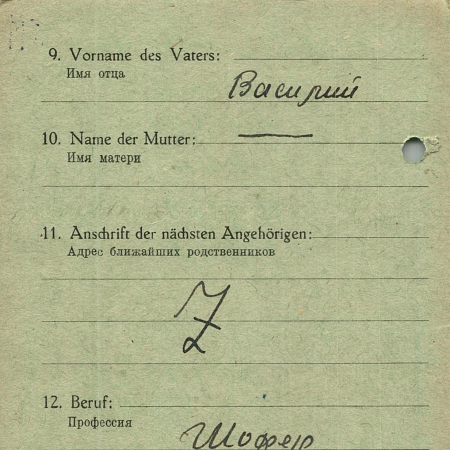 9. Vorname des Vaters:
Имя отца
Василий
10. Name der Mutter: —
Имя матери
11. Anschrift der nächsten Angehörigen:
Адрес ближайших родственников
Z
12. Beruf:
Профессия
Шофер